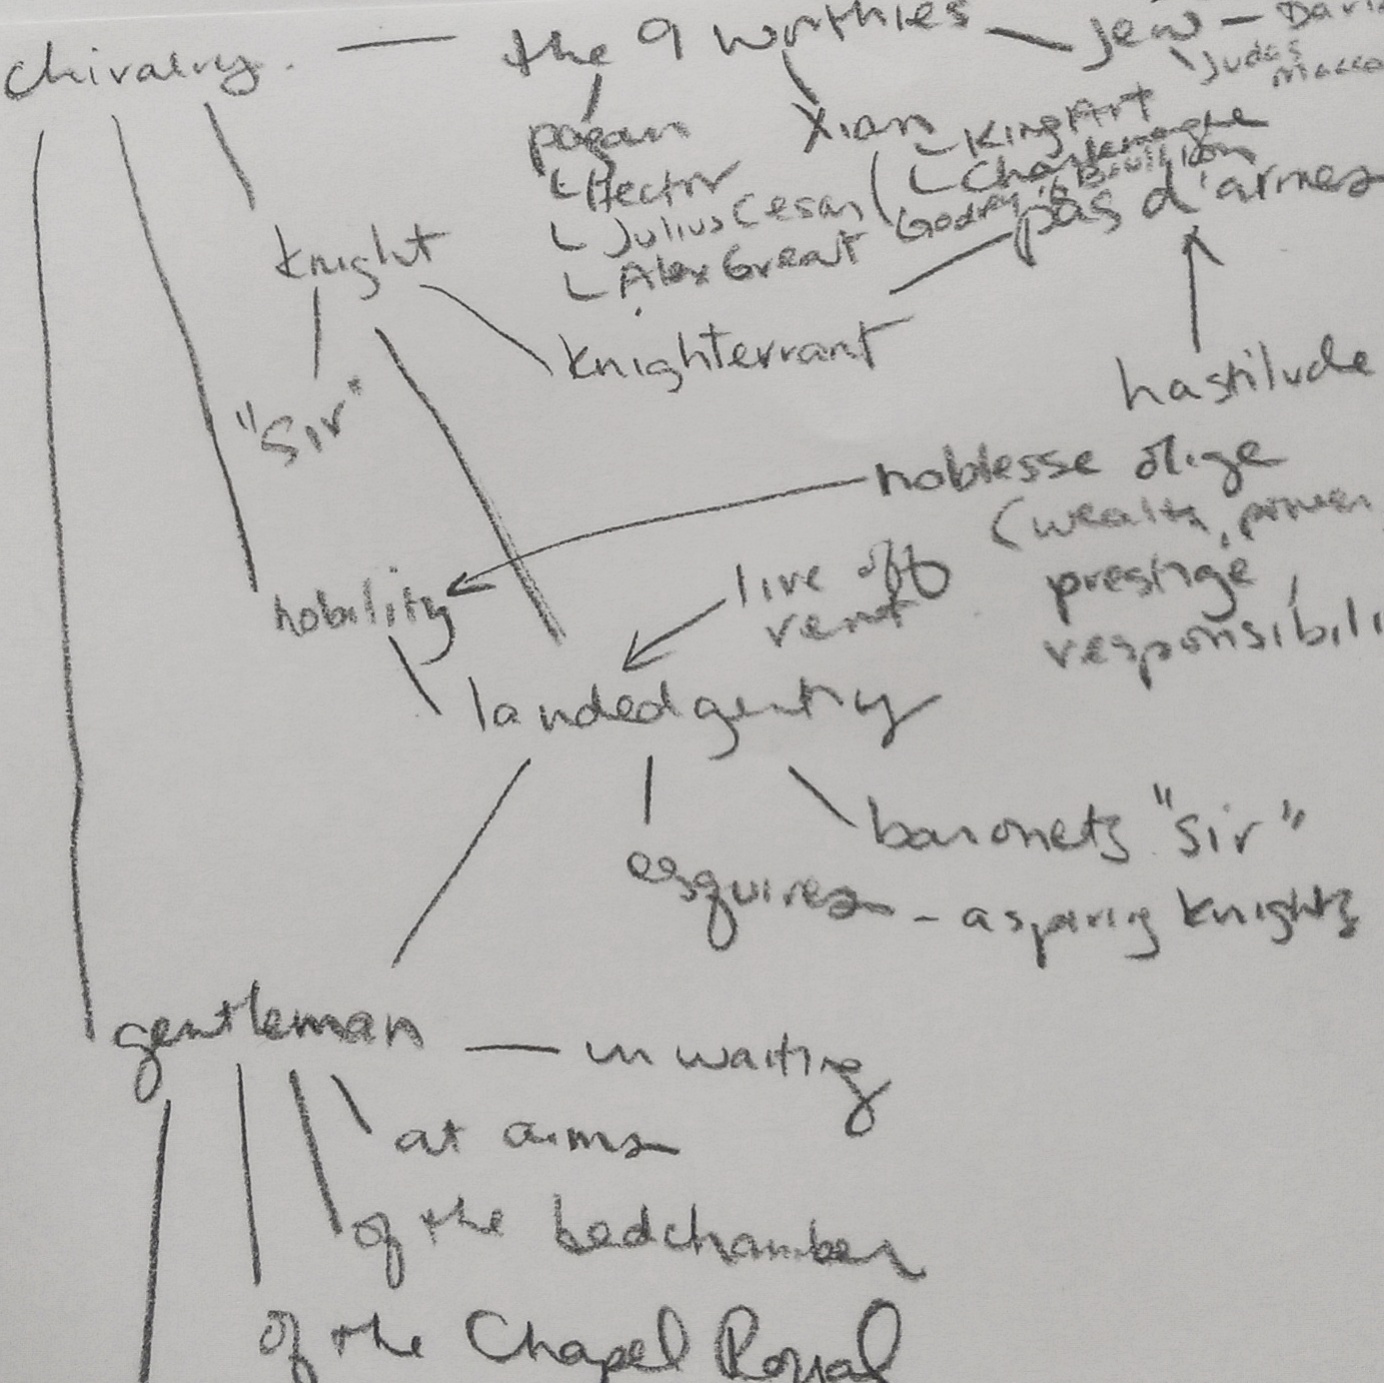 chivalry. — the 9 worthies — Jew — Davi
Judas
Macca
pagan
Xian
King Art
Hector
Charlemagne
Julius Cesar
Godfrey
Bouillion
Alex Great
pas d'armes
knight
knighterrant
hastilude
"Sir"
noblesse oblige
(wealth, power,
prestige,
responsibili
live off
rent
nobility
landed gentry
baronets "Sir"
esquires - aspiring knights
gentleman — in waiting
at arms
of the bedchamber
of the Chapel Royal